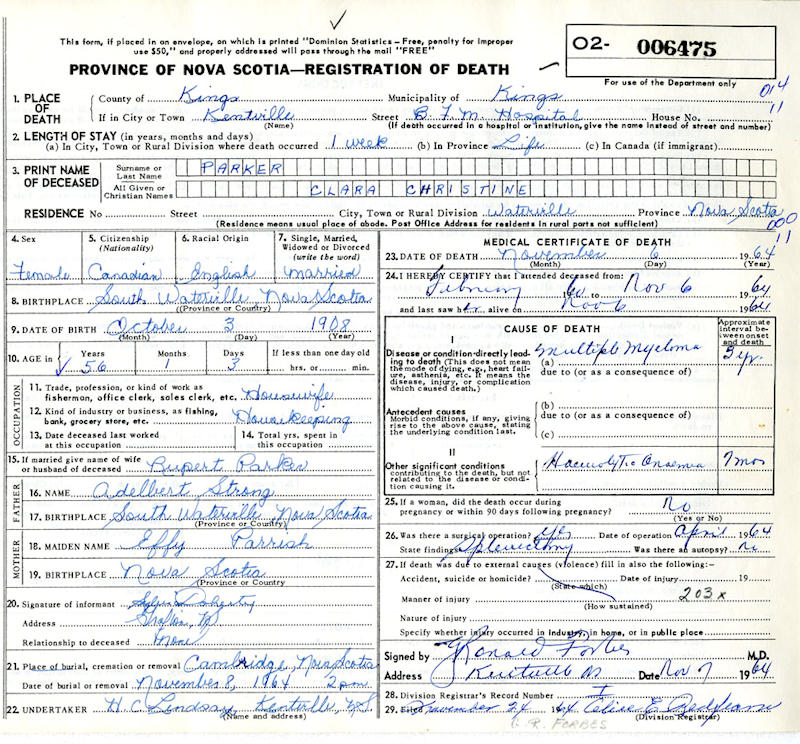 This form, if placed in an envelope, on which is printed "Dominion Statistics – Free, penalty for improper
use $50," and properly addressed will pass through the mail "FREE"
PROVINCE OF NOVA SCOTIA—REGISTRATION OF DEATH
O2- 006475
For use of the Department only
014
11
1. PLACE OF DEATH County of Kings Municipality of Kings
If in City or Town Kentville Street B. F. M. Hospital House No.
(Name) (If death occurred in a hospital or institution, give the name instead of street and number)
2. LENGTH OF STAY (in years, months and days)
(a) In City, Town or Rural Division where death occurred 1 week (b) In Province Life (c) In Canada (if immigrant)
3. PRINT NAME OF DECEASED Surname or Last Name PARKER
All Given or Christian Names CLARA CHRISTINE
RESIDENCE No Street City, Town or Rural Division Waterville Province Nova Scotia
(Residence means usual place of abode. Post Office Address for residents in rural parts not sufficient)
000
11
4. Sex Female
5. Citizenship (Nationality) Canadian
6. Racial Origin English
7. Single, Married, Widowed or Divorced (write the word) Married
8. BIRTHPLACE South Waterville, Nova Scotia
(Province or Country)
9. DATE OF BIRTH October 3 1908
(Month) (Day) (Year)
10. AGE in Years 56 Months 1 Days 3 If less than one day old
hrs. or min.
OCCUPATION
11. Trade, profession, or kind of work as
fisherman, office clerk, sales clerk, etc. Housewife
12. Kind of industry or business, as fishing,
bank, grocery store, etc. Housekeeping
13. Date deceased last worked
at this occupation
14. Total yrs. spent in
this occupation
15. If married give name of wife
or husband of deceased Rupert Parker
FATHER
16. NAME Adelbert Strong
17. BIRTHPLACE South Waterville, Nova Scotia
(Province or Country)
MOTHER
18. MAIDEN NAME Effy Parrish
19. BIRTHPLACE Nova Scotia
Province or Country
20. Signature of informant Doherty
Address
Relationship to deceased None
21. Place of burial, cremation or removal Cambridge, Nova Scotia
Date of burial or removal November 8, 1964 2 pm
22. UNDERTAKER H. C. Lindsay, Kentville, N.S.
(Name and address)
MEDICAL CERTIFICATE OF DEATH
23. DATE OF DEATH November 6 1964
(Month) (Day) (Year)
24. I HEREBY CERTIFY that I attended deceased from:
February 60 to Nov 6 1964
and last saw her alive on Nov 6 1964
CAUSE OF DEATH
Approximate interval between onset and death
I
Disease or condition directly leading to death (This does not mean the mode of dying, e.g., heart failure, asthenia, etc. It means the disease, injury, or complication which caused death.)
(a) Multiple Myeloma 3 yr.
due to (or as a consequence of)
Antecedent causes
Morbid conditions, if any, giving rise to the above cause, stating the underlying condition last.
(b)
due to (or as a consequence of)
(c)
II
Other significant conditions
contributing to the death, but not related to the disease or condition causing it.
Haemolytic Anaemia 7 mos
25. If a woman, did the death occur during
pregnancy or within 90 days following pregnancy? No
(Yes or No)
26. Was there a surgical operation? Yes Date of operation April 1964
State findings Splenectomy Was there an autopsy? No
27. If death was due to external causes (violence) fill in also the following:—
Accident, suicide or homicide? Date of injury 19
(State which)
Manner of injury 203x
(How sustained)
Nature of injury
Specify whether injury occurred in industry, in home, or in public place
Signed by Ronald Forbes M.D.
Address Kentville NS Date Nov 7 1964
28. Division Registrar's Record Number
29. Filed November 24 1964
(Division Registrar)
G. R. FORBES